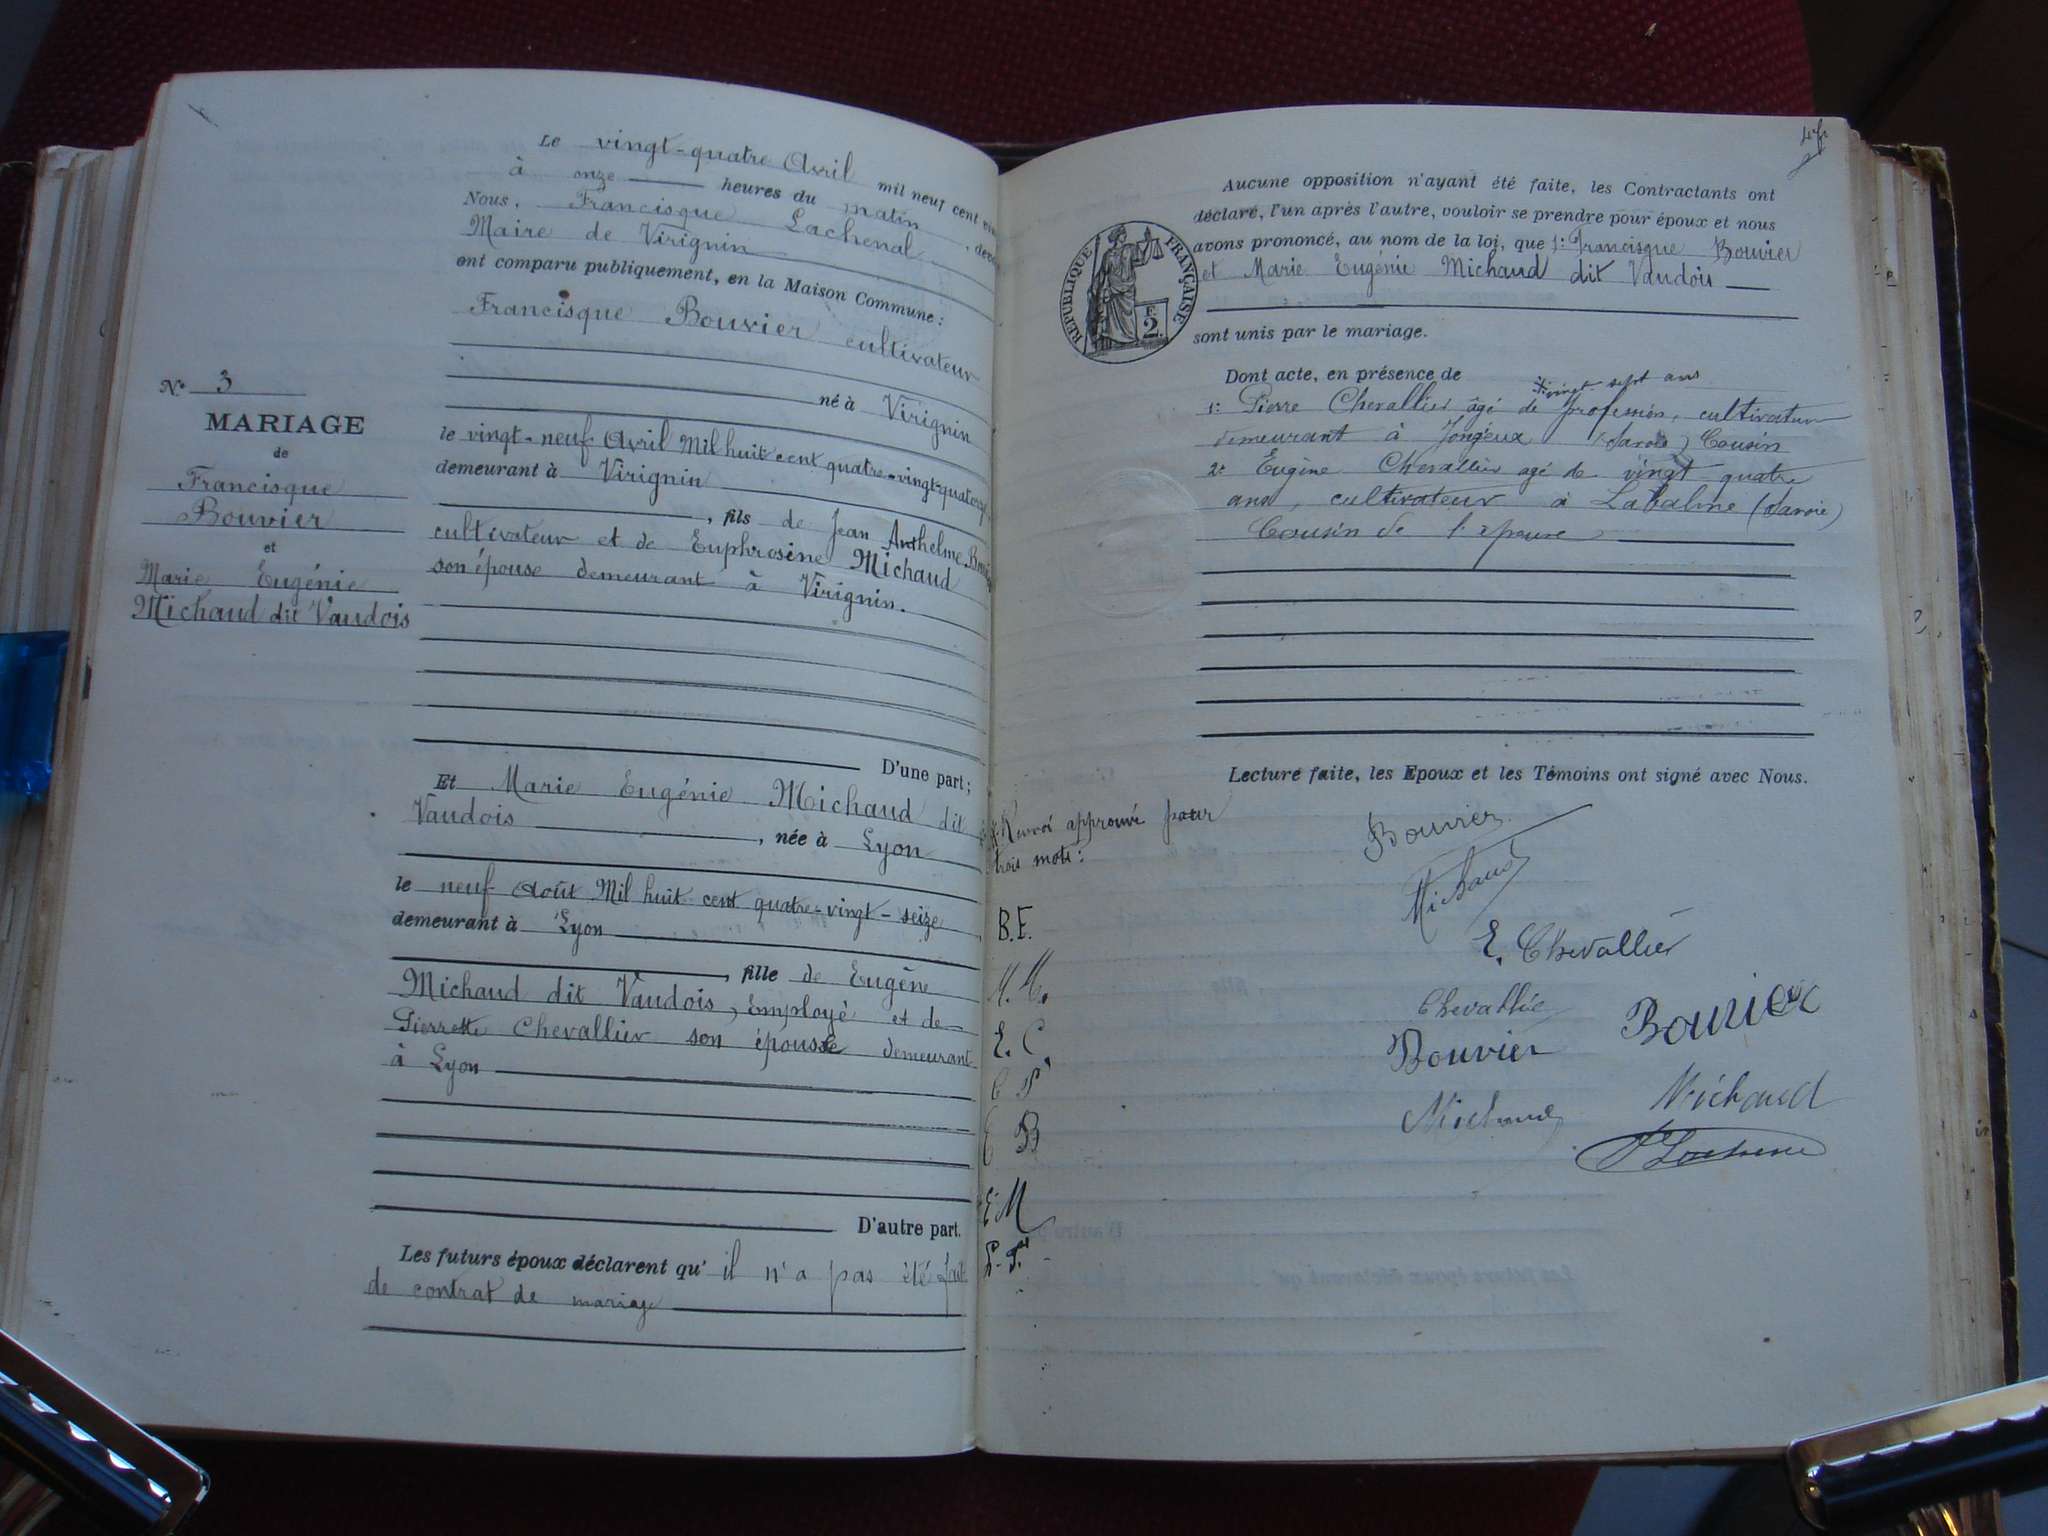 Le vingt-quatre Avril mil neuf cent
à onze heures du matin, 
Nous, Francisque Lachenal
Maire de Virignin
ont comparu publiquement, en la Maison Commune :
Francisque Bouvier cultivateur
né à Virignin
le vingt-neuf Avril Mil huit cent quatre-vingt-quatorze
demeurant à Virignin
, fils de Jean Anthelme
cultivateur et de Euphrosine Michaud
son épouse demeurant à Virignin.
D'une part ;
N° 3
MARIAGE
de
Francisque
Bouvier
et
Marie Eugénie
Michaud dit Vaudois
Et Marie Eugénie Michaud dit
Vaudois , née à Lyon
le neuf Août Mil huit cent quatre-vingt-seize
demeurant à Lyon
, fille de Eugène
Michaud dit Vaudois, Employé et de
Pierrette Chevallier son épouse demeurant
à Lyon
D'autre part.
Les futurs époux déclarent qu'il n'a pas été fait
de contrat de mariage
Aucune opposition n'ayant été faite, les Contractants ont
déclaré, l'un après l'autre, vouloir se prendre pour époux et nous
avons prononcé, au nom de la loi, que 1: Francisque Bouvier
et Marie Eugénie Michaud dit Vaudois
sont unis par le mariage.
RÉPUBLIQUE FRANÇAISE
F.
2.
Dont acte, en présence de
vingt-sept ans
1: Pierre Chevallier âgé de profession, cultivateur
demeurant à Jongieux (Savoie) Cousin
2: Eugène Chevallier agé de vingt quatre
ans, cultivateur à Labalme (Savoie)
Cousin de l'épouse
Lecture faite, les Epoux et les Témoins ont signé avec Nous.
Renvoi approuvé pour
trois mots :
B.F.
M. M.
E. C.
C P
E B
E. M
L. F.
Bouvier
Michaud
E. Chevallier
Chevallier
Bouvier
Bouvier
Michaud
Michaud